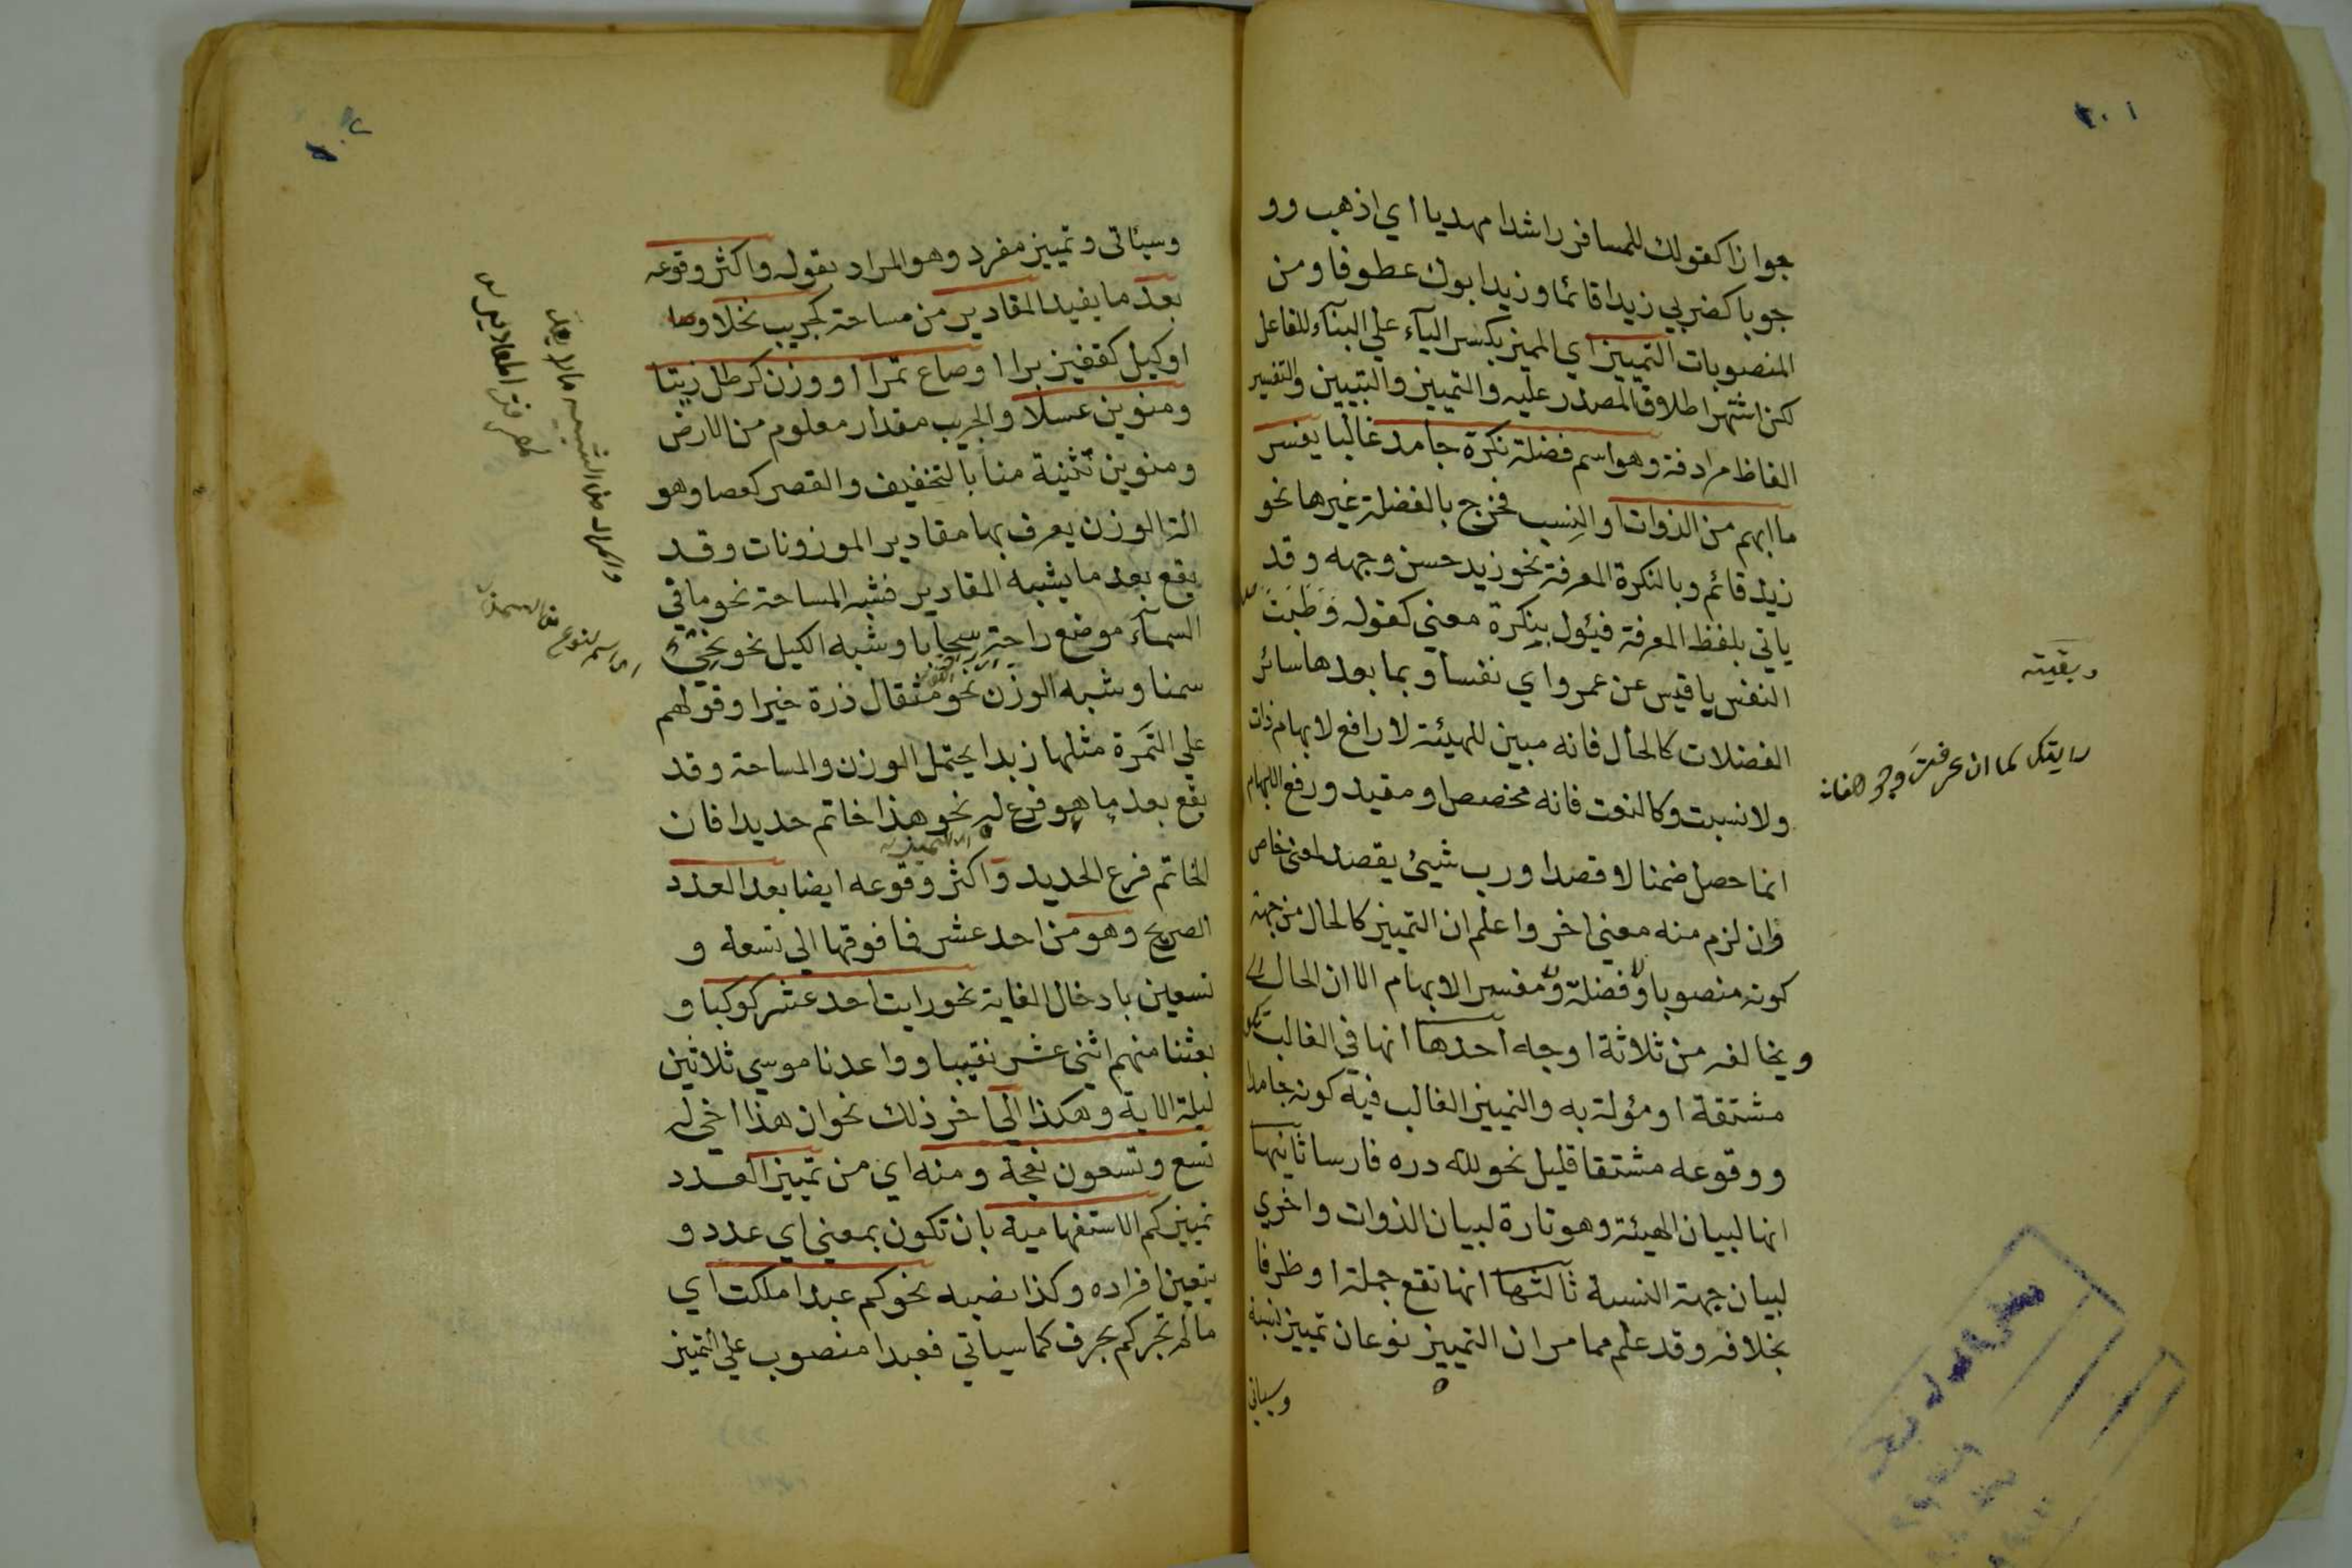 ٢٠١
جوازا كقولك للمسافر راشدا مهديا اي اذهب وو
جوبا كضربي زيدا قائما وزيدا بوك عطوفا ومن
المنصوبات التمييز اي المميز بكسر اليآء علي البنآء للفاعل
لكن اشتهر اطلاق المصدر عليه والتمييز والتبيين والتفسير
الفاظ مرادفة وهو اسم فضلة نكرة جامد غالبا يفسر
ما ابهم من الذوات او النسب فخرج بالفضلة غيرها نحو
زيد قائم وبالنكرة المعرفة نحو زيد حسن وجهه وقد
ياتي بلفظ المعرفة فيئول بنكرة معني كقوله وَطَبْتَ
النفس يا قيس عن عمرو اي نفسا وبما بعدها سائر
الفضلات كالحال فانه مبين للهيئة لا رافع لابهام ذات
ولا نسبت وكالنعت فانه مخصص او مقيد ورفع الابهام
انما حصل ضمنا لا قصدا ورب شيئ يقصد لمعني خاص
وان لزم منه معني اخر واعلم ان التمييز كالحال من جهة
كونه منصوبا وفضلة ومفسر الابهام الا ان الحال
ويخالفه من ثلاثة اوجه احدها انها في الغالب تكون
مشتقة او مؤلة به والتمييز الغالب فيه كونه جامدا
ووقوعه مشتقا قليل نحو لله دره فارسا ثانيها
انها لبيان الهيئة وهو تارة لبيان الذوات واخري
لبيان جهة النسبة ثالثها انها تقع جملة او ظرفا
بخلافه وقد علم مما مر ان التمييز نوعان تمييز نسبة
وسياتي
وبقيته
رايتك لما ان عرفت وجوهنا
٢٠٢
وسيئاتى وتمييز مفرد وهو المراد بقوله واكثر وقوعه
بعد ما يفيد المقادير من مساحة كجريب نخلا
او كيل كقفيز برا او صاع تمرا او وزن كرطل زيتا
ومنوين عسلا والجريب مقدار معلوم من الارض
ومنوين تثنية منا بالتخفيف والقصر كعصا وهو
الة الوزن يعرف بها مقادير الموزونات وقد
يقع بعد ما يشبه المقادير فشبه المساحة نحو ما في
السمآء موضع راحة سحابا وشبه الكيل نحو نحي
سمنا وشبه الوزن نحو مثقال ذرة خيرا وقولهم
علي التمرة مثلها زبدا يحتمل الوزن والمساحة وقد
يقع بعد ما هو فرع له نحو هذا خاتم حديدا فان
الخاتم فرع الحديد واكثر وقوعه ايضا بعد العدد
الصريح وهو من احد عشر فما فوقها الي تسعة و
تسعين بادخال الغاية نحو رايت احد عشر كوكبا و
بعثنا منهم اثني عشر نقيبا وواعدنا موسي ثلاثين
ليلة الاية وهكذا الي اخر ذلك نحو ان هذا اخي له
تسع وتسعون نعجة ومنه اي من تمييز العدد
تمييز كم الاستفهامية بان تكون بمعني اي عدد و
يتعين افراده وكذا نصبه نحو كم عبدا ملكت اي
مالم تجر كم بحرف كما سياتي فعبدا منصوب علي التميز